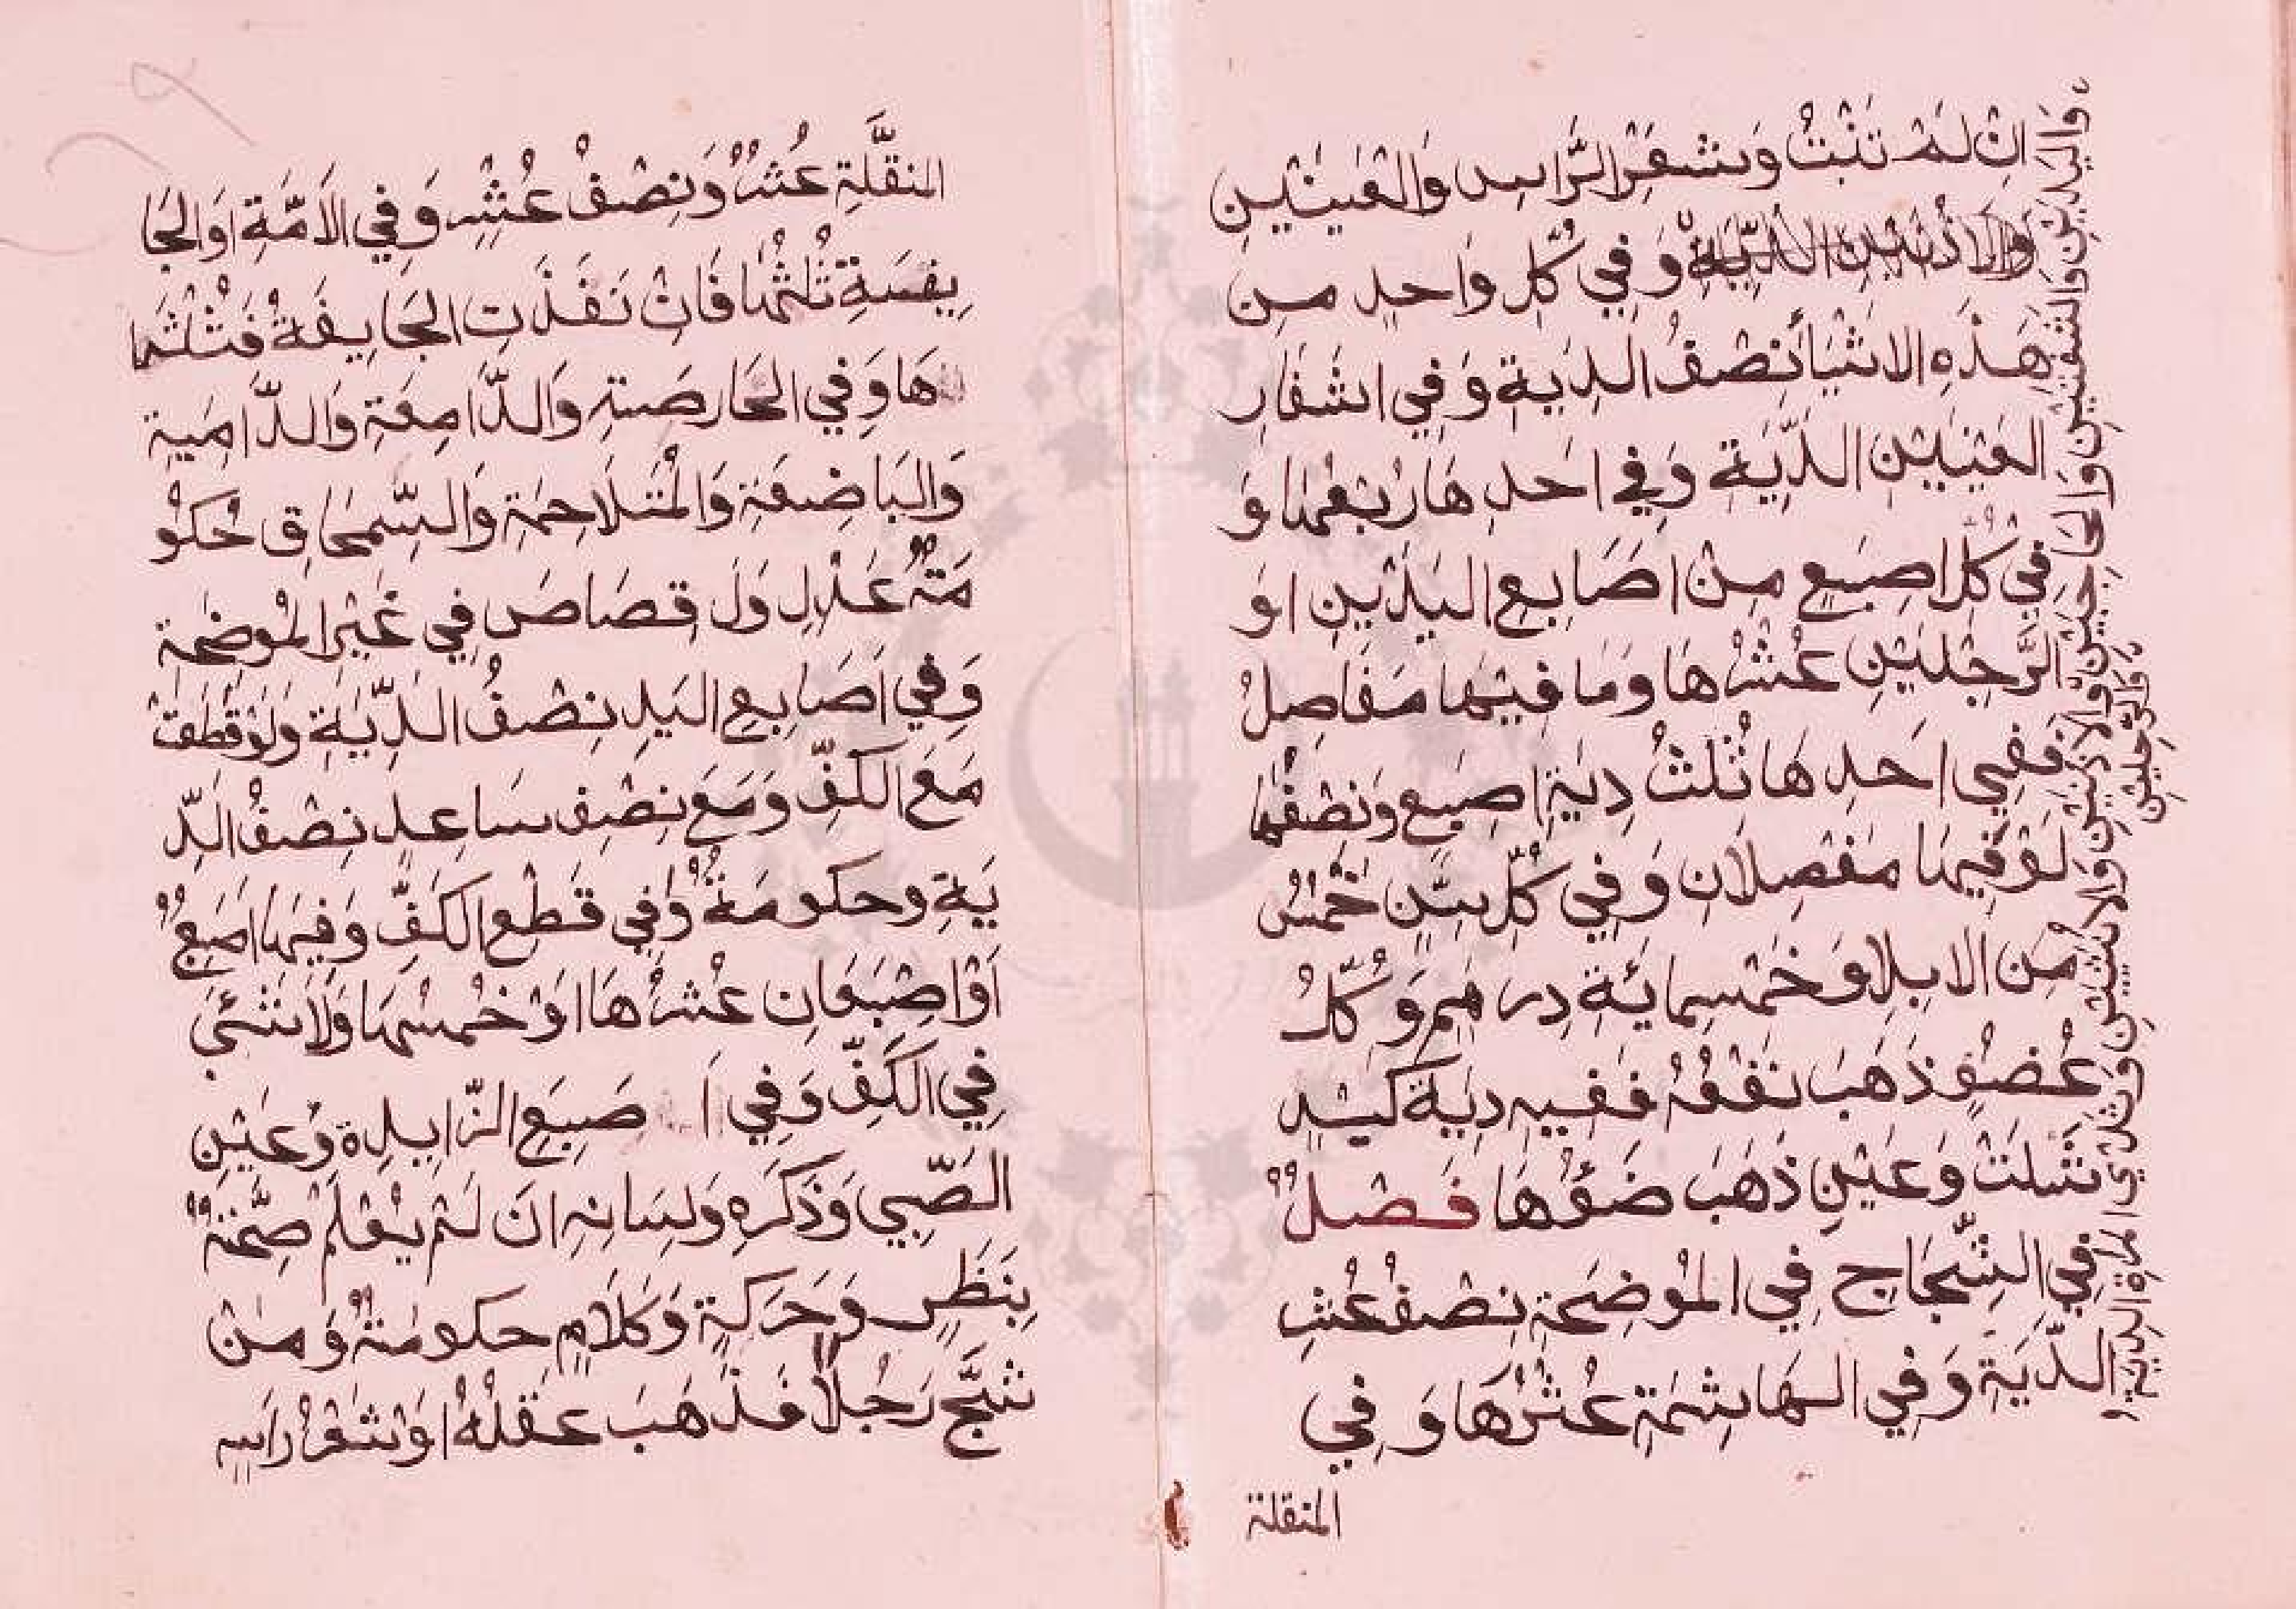 اِنْ لَمْ تَنْبُتْ وَشَعْرِ الرَّاسِ وَالْعَيْنَيْنِ
وَالاُذُنَيْنِ الدِّيَةُ وَفِي كُلِّ وَاحِدٍ مِنْ
هَذِهِ الاشْيَاَ نِصْفُ الدِيَةِ وَفِي اشْفَارِ
الْعَيْنَيْنِ الدِّيَةُ وَفِي اَحَدِهَا رُبْعُهَا وَ
فِي كُلِّ اصِبَعٍ مِنْ اصَابِعِ اليَدَيْنِ اوَ
الرِّجْلَيْنِ عُشْرُهَا وَمَا فِيْهَا مَفَاصِلُ
فَفِي اَحَدِهَا ثُلْثُ دِيَةِ اصِبَعٍ وَنِصْفُهَا
لَوْ فِيْهَا مَفْصِلَانِ وَفِي كُلِّ سِنٍّ خَمْسٌ
مِنَ الابِلِ اوَ خَمْسِمِائَةِ دِرْهَمٍ وَكُلُّ
عُضْوٍ ذَهَبَ نَفْعُهُ فَفِيهِ دِيَة كَيَدٍ
شَلَتْ وَعَيْنٍ ذَهَبَ ضَوْؤُهَا فَصْلٌ
فِي الشِّجَاجِ فِي الْمُوْضِحَةِ نِصْفُ عُشْرِ
الدِّيَةِ وَفِي الهَاشِمَةِ عُشْرُهَا وَفِي
المنقلة
وَاليَدَيْنِ وَالشَّفَتَيْنِ وَالحَاجِبَيْنِ وَالرِّجْلَيْنِ
وَالاُذُنَيْنِ وَالاُنْثَيَيْنِ وَثَدْيَيِ المَرْاَةِ الدِّيَةُ
المنقَّلَةِ عُشْرٌ وَنِصْفُ عُشْرٍ وَفِي الاَمَّةِ اوَالجَا
يِفَةِ ثُلْثُهَا فَانْ نَفَذَتِ الجَايِفَةُ فَثُلْثَا
هَا وَفِي الحَارِصَةِ وَالدَّامِعَةِ وَالدَّامِيَةِ
وَالبَاضِعَةِ وَالْمُتَلَاحِمَةِ وَالسِّمْحَاقِ حُكُوْ
مَةُ عَدْلٍ وَلَ قِصَاصَ فِي غَيْرِ الْمُوضِحَةِ
وَفِي اَصَابِعِ اليَدِ نِصْفُ الدِّيَةِ وَلَوْ قَطَعَ
مَعَ الكَفِّ وَمَعَ نِصْفِ سَاعِدٍ نِصْفُ الدِّ
يَةِ وحكومَةٌ وَفِي قَطْعِ الكَفِّ وَفِيهَا اصَبِعٌ
اَوْ اصِبَعَانِ عُشْرُهَا اوَ خُمْسُهَا وَلَا شَئَ
فِي الكَفِّ وَفِي اَصِبَعِ الزَّايِدةِ وَعَيْنِ
الصَّبِي وَذَكَرِهِ وَلِسَانِهِ انَ لَمْ يَعْلَمْ صِحَّتَهُ
بِنَظَرٍ وَحَرَكَةٍ وَكَلَامٍ حكومَةٌ وَمنْ
شَجَّ رَجُلًا فَذَهَبَ عَقْلُهُ اوَ شَعْرُ رَاسِهِ